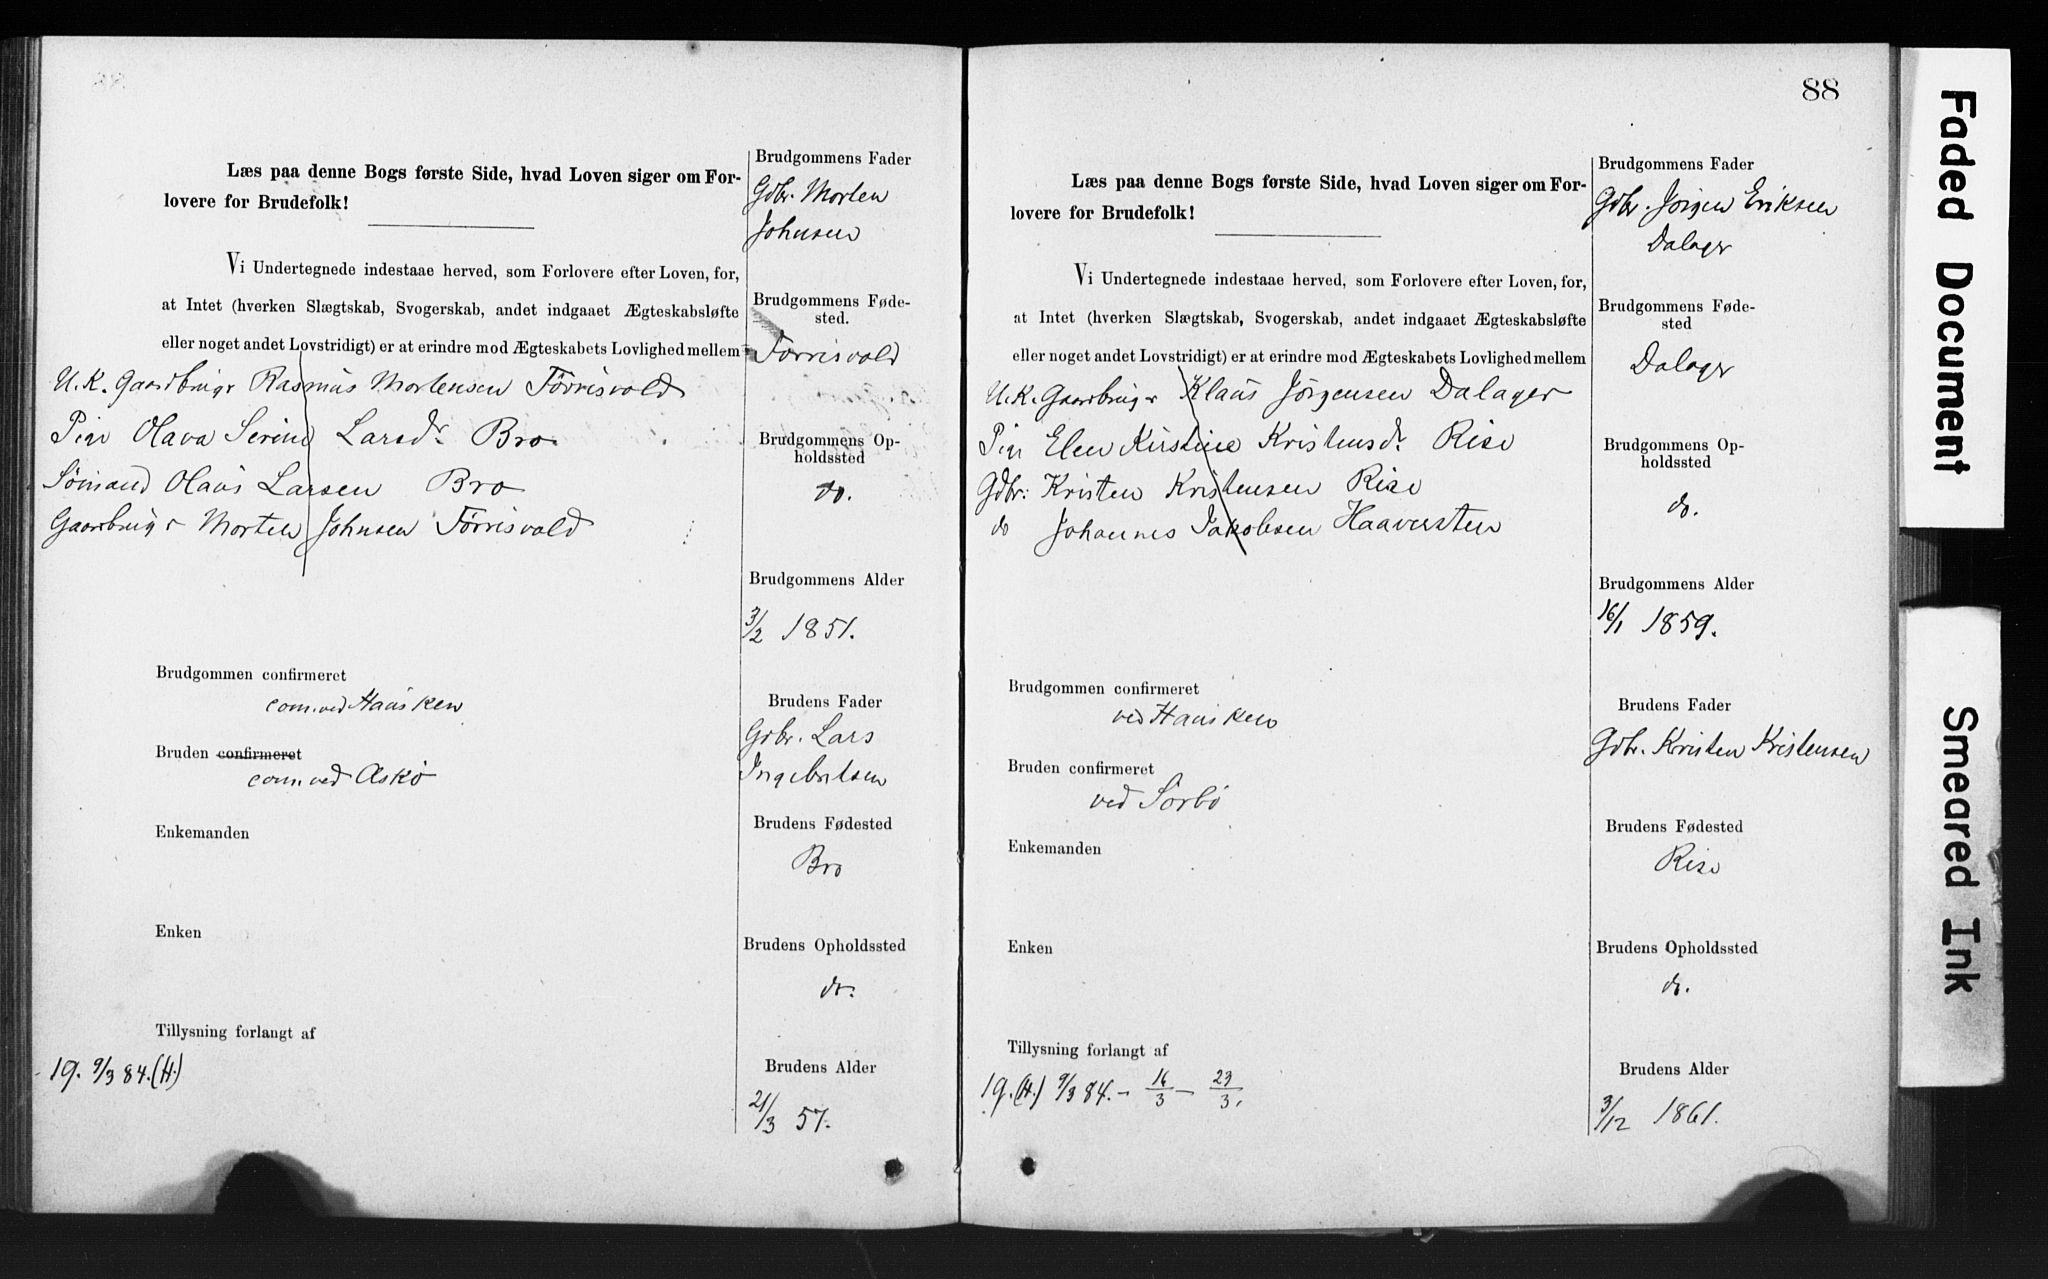 Læs paa denne Bogs første Side, hvad Loven siger om For-
lovere for Brudefolk!
Vi Undertegnede indestaae herved, som Forlovere efter Loven, for,
at Intet (hverken Slægtskab, Svogerskab, andet indgaaet Ægteskabsløfte
eller noget andet Lovstridigt) er at erindre mod Ægteskabets Lovlighed mellem
U.K. Gaardbruger Rasmus Mortensen Førrisvold
Pige Olava Serine Larsdr. Bro
Sømand Olaus Larsen Bro
Gaardbruger Morten Johnsen Førrisvold
Brudgommen confirmeret
com. ved Hausken
Bruden confirmeret
com. ved Askø
Enkemanden
Enken
Tillysning forlangt af
19. 9/3 84. (H.)
Brudgommens Fader
Gdbr. Morten
Johnsen
Brudgommens Føde-
sted.
Førrisvold
Brudgommens Op-
holdssted
do.
Brudgommens Alder
3/2 1851.
Brudens Fader
Gdbr. Lars
Ingebritsen
Brudens Fødested
Bro
Brudens Opholdssted
do.
Brudens Alder
21/3 57.
88
Læs paa denne Bogs første Side, hvad Loven siger om For-
lovere for Brudefolk!
Vi Undertegnede indestaae herved, som Forlovere efter Loven, for,
at Intet (hverken Slægtskab, Svogerskab, andet indgaaet Ægteskabsløfte
eller noget andet Lovstridigt) er at erindre mod Ægteskabets Lovlighed mellem
U.K. Gaardbruger Klaus Jørgensen Dalager
Pige Elen Kirstine Kristensdr. Rise
Gdbr. Kristen Kristensen Rise
do Johannes Jakobsen Haaversten
Brudgommen confirmeret
ved Hausken
Bruden confirmeret
ved Sørbø
Enkemanden
Enken
Tillysning forlangt af
19. (H.) 9/3 84. – 16/3 – 23/3.
Brudgommens Fader
Gdbr. Jørgen Eriksen
Dalager
Brudgommens Føde-
sted
Dalager
Brudgommens Op-
holdssted
do.
Brudgommens Alder
16/1 1859.
Brudens Fader
Gdbr. Kristen Kristensen
Brudens Fødested
Rise
Brudens Opholdssted
do.
Brudens Alder
3/12 1861.
Faded Document
Smeared Ink